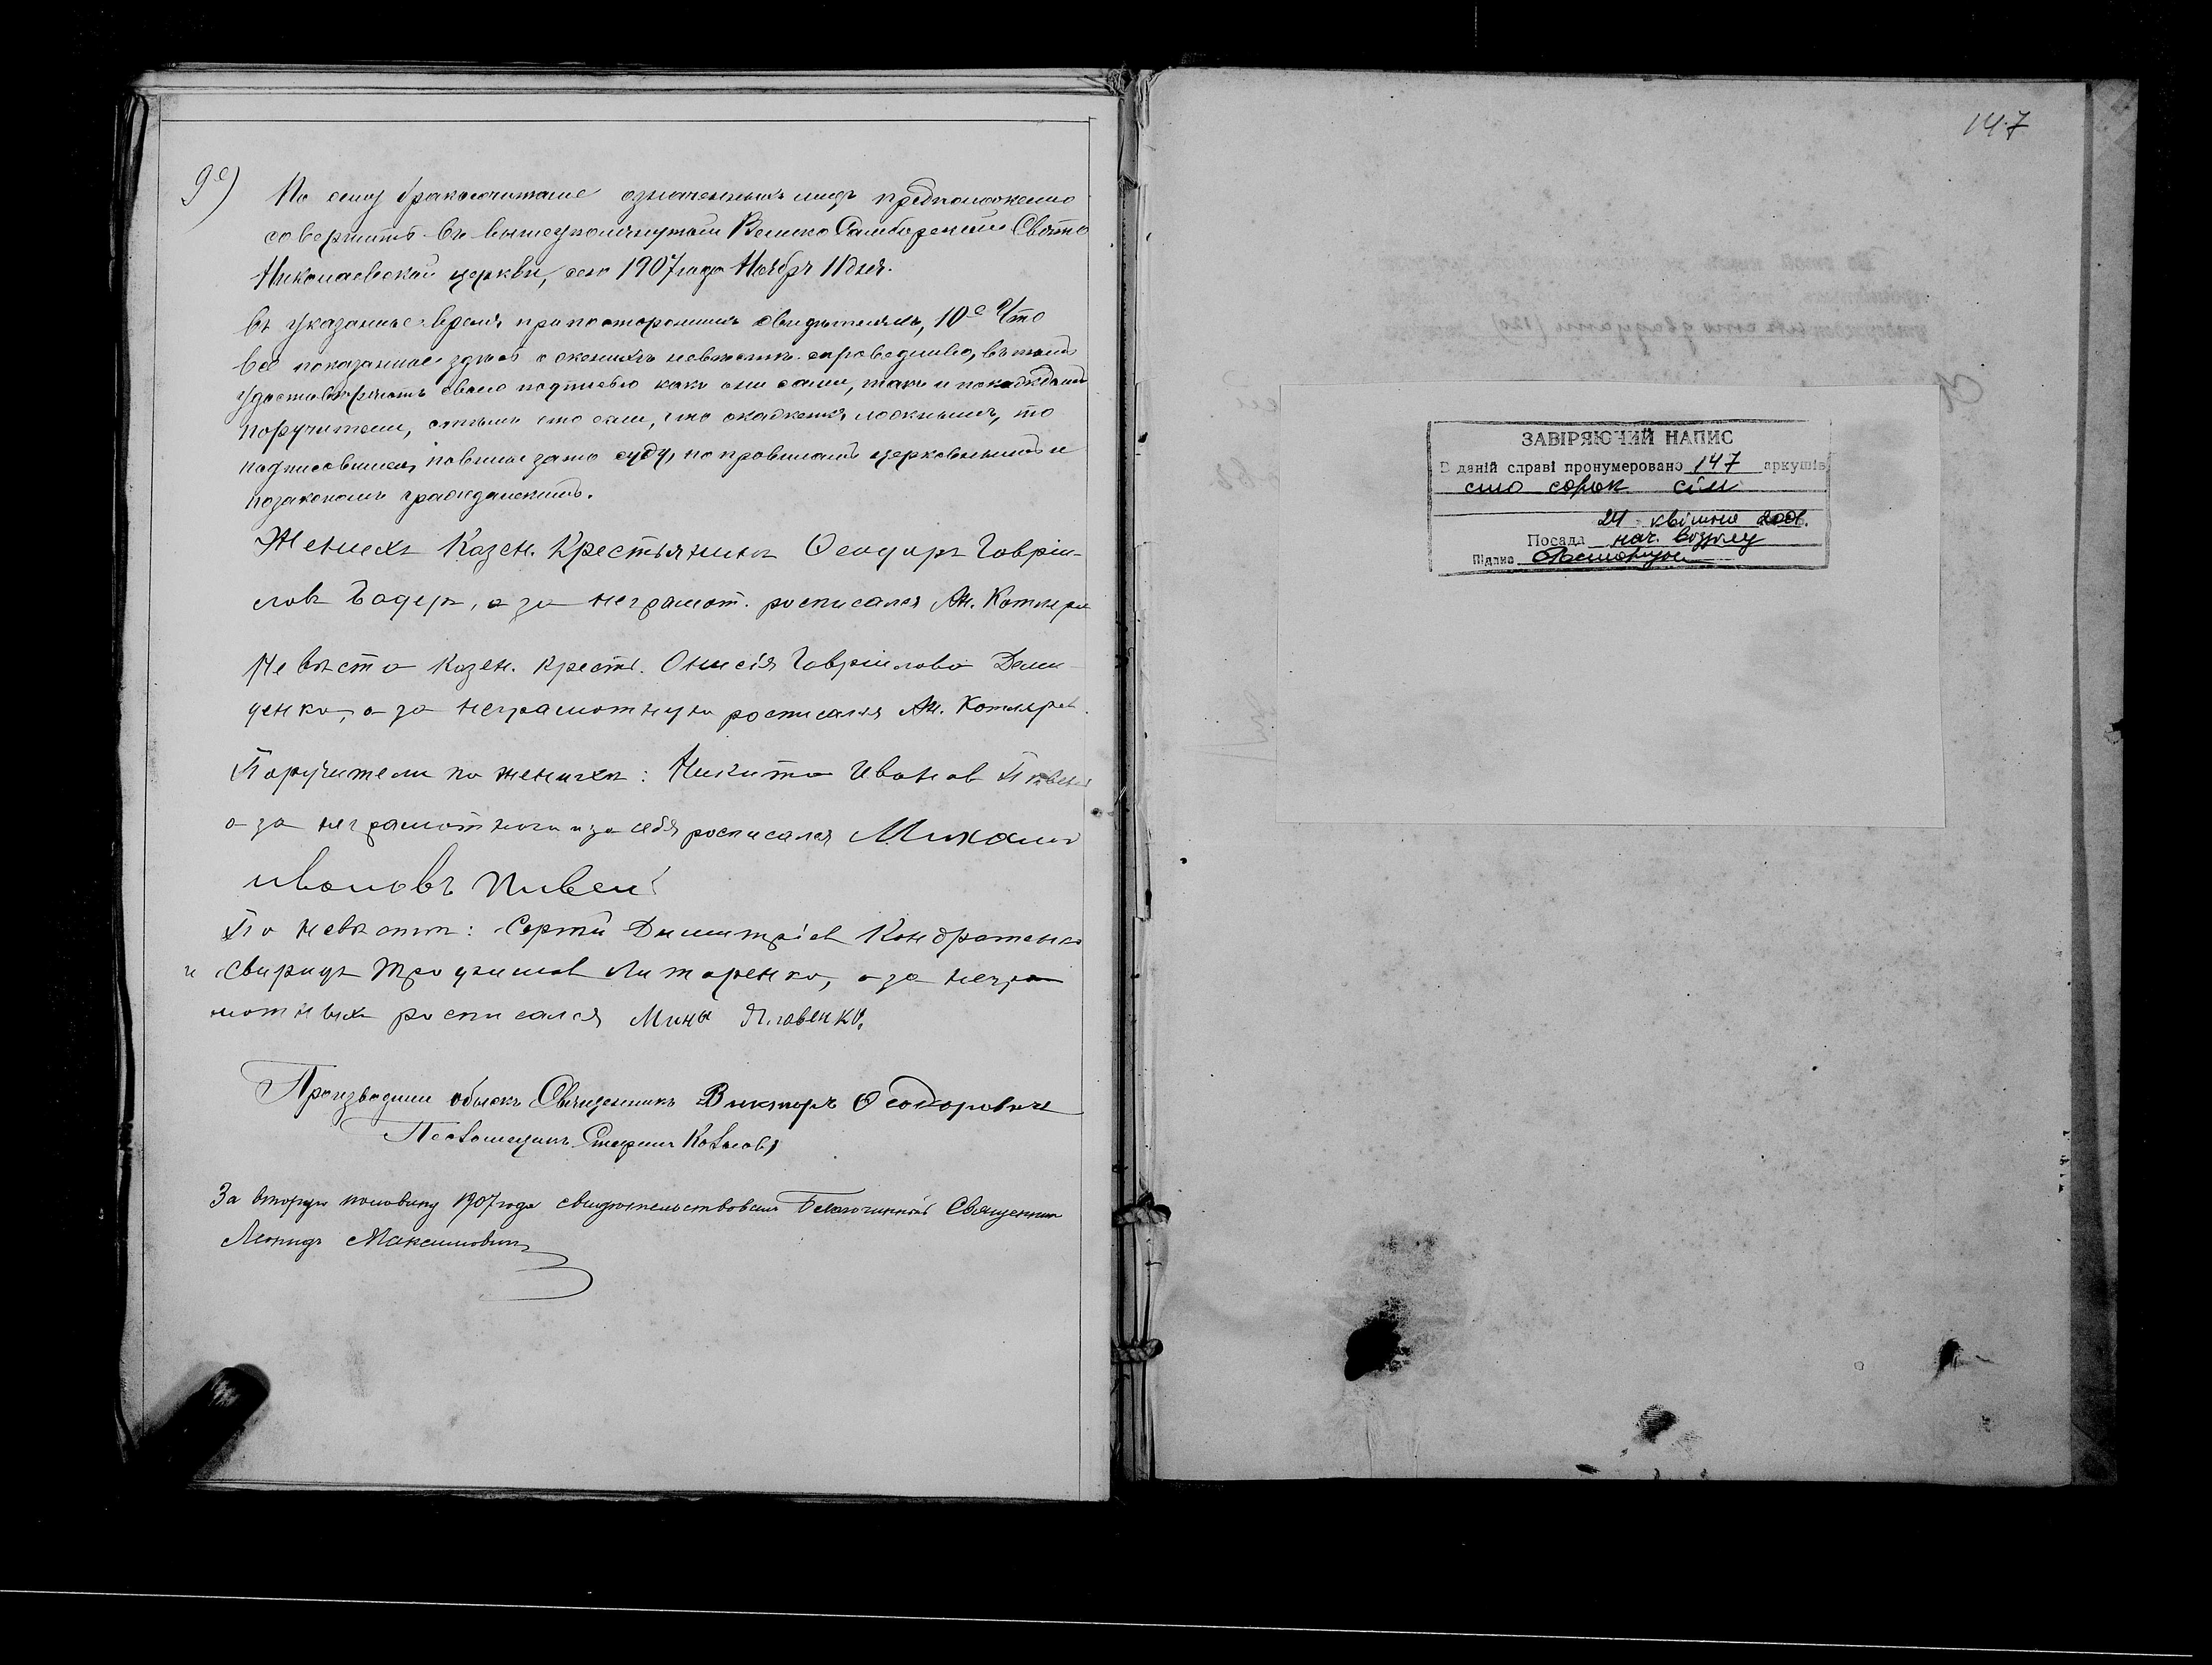 9е) По сему бракосочитание означенныхъ лицъ предположено
совершить въ вышеупомянутой Велико Самборской Свято
Николаевской церкви, сего 1907 года Ноября 11 дня.
въ указанное время при постороннихъ свидѣтеляхъ, 10е Что
все показанное здѣсь о женихѣ и невѣстѣ справедливо, въ томъ
удостовѣряютъ своею подписью какъ они сами, такъ и по каждомъ
поручители, съ тѣмъ что если, что окажется ложнымъ, то
подписавшіеся, повинны за то суду, по правиламъ церковнымъ и
по законамъ гражданскимъ.
Женихъ Казен. Крестьянинъ Ѳеодоръ Гаврiи-
ловъ Бадеръ, а за неграмот. росписался Ан. Котляръ
Невѣста Казен. крест. Онисія Гавріилова Деми-
денко, а за неграмотную росписался Ан. Котляръ.
Поручители по женихѣ: Никита Иванов Пивень
а за неграмотного и за себя росписался Михаилъ
Ивановъ Пивень
По невѣстѣ: Сергій Димитріев Кондратенко
и Свиридъ Трофимов Литаренко, а за негра
мотныхъ росписался Мина
Производили обыскъ Священникъ Викторъ Ѳеодоровичъ
Псаломщикъ Стефанъ
За вторую половину 1907 года свидѣтельствовалъ Благочинный Священник
Леонидъ Максимовичъ
147
ЗАВІРЯЮЧИЙ НАПИС
В даній справі пронумеровано 147 аркушів
сто сорок сім
24 квітня 2001.
Посада нач. відділу
Підпис